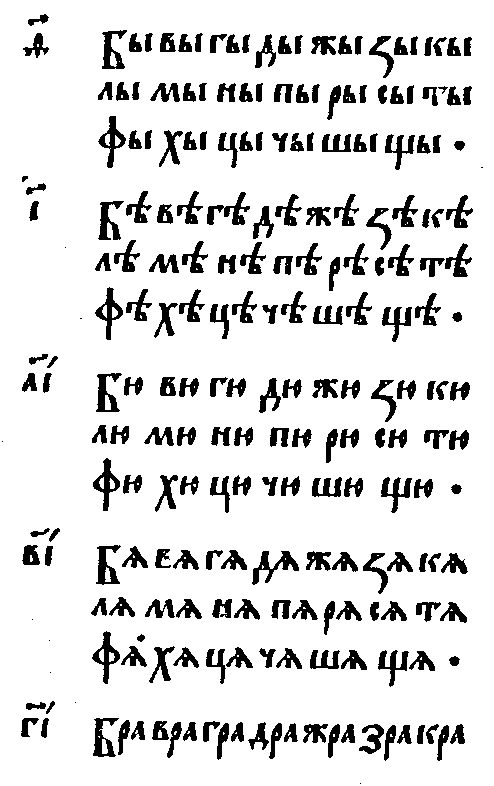 Ѳ҃ Бы вы гы ды жы зы кы
лы мы ны пы ры сы ты
фы хы цы чы шы щы .
І҃ Бѣ вѣ гѣ дѣ жѣ зѣ кѣ
лѣ мѣ нѣ пѣ рѣ сѣ тѣ
фѣ хѣ цѣ чѣ шѣ щѣ .
а҃і Бю вю гю дю жю зю кю
лю мю ню пю рю сю тю
фю хю цю чю шю щю .
в҃і Бѧ вѧ гѧ дѧ жѧ зѧ кѧ
лѧ мѧ нѧ пѧ рѧ сѧ тѧ
фѧ хѧ цѧ чѧ шѧ щѧ .
г҃і Бра вра гра дра жра зра кра